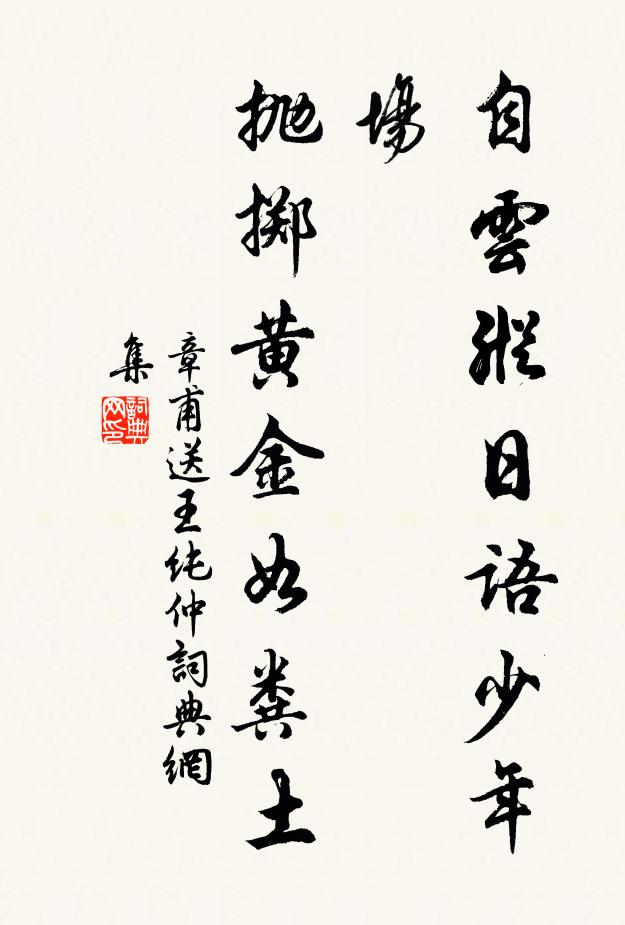 自雲縱日語少年
場
拋掷黄金如糞土
章甫送王純仲詞典網
集
詞典
网印